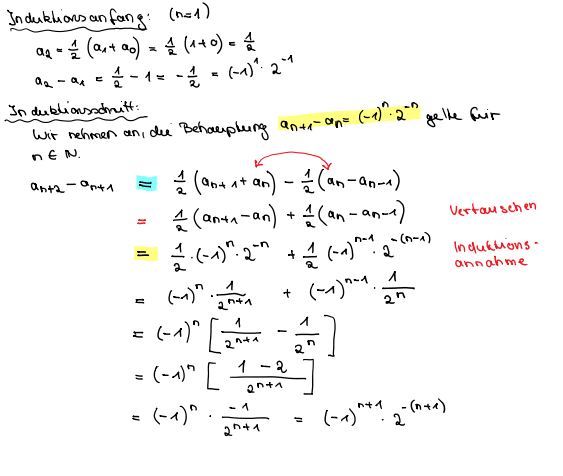 Induktionsanfang: (n=1)
a₂ = 1/2 (a₁ + a₀) = 1/2 (1+0) = 1/2
a₂ − a₁ = 1/2 − 1 = −1/2 = (−1)¹ · 2⁻¹
Induktionsschritt:
Wir nehmen an, die Behauptung aₙ₊₁ − aₙ = (−1)ⁿ · 2⁻ⁿ gelte für
n ∈ ℕ.
aₙ₊₂ − aₙ₊₁ = 1/2 (aₙ₊₁ + aₙ) − 1/2 (aₙ − aₙ₋₁)
= 1/2 (aₙ₊₁ − aₙ) + 1/2 (aₙ − aₙ₋₁) Vertauschen
= 1/2 · (−1)ⁿ · 2⁻ⁿ + 1/2 (−1)ⁿ⁻¹ · 2^−(n−1) Induktions-
annahme
= (−1)ⁿ · 1/2ⁿ⁺¹ + (−1)ⁿ⁻¹ · 1/2ⁿ
= (−1)ⁿ [ 1/2ⁿ⁺¹ − 1/2ⁿ ]
= (−1)ⁿ [ (1 − 2)/2ⁿ⁺¹ ]
= (−1)ⁿ · −1/2ⁿ⁺¹ = (−1)ⁿ⁺¹ · 2^−(n+1)